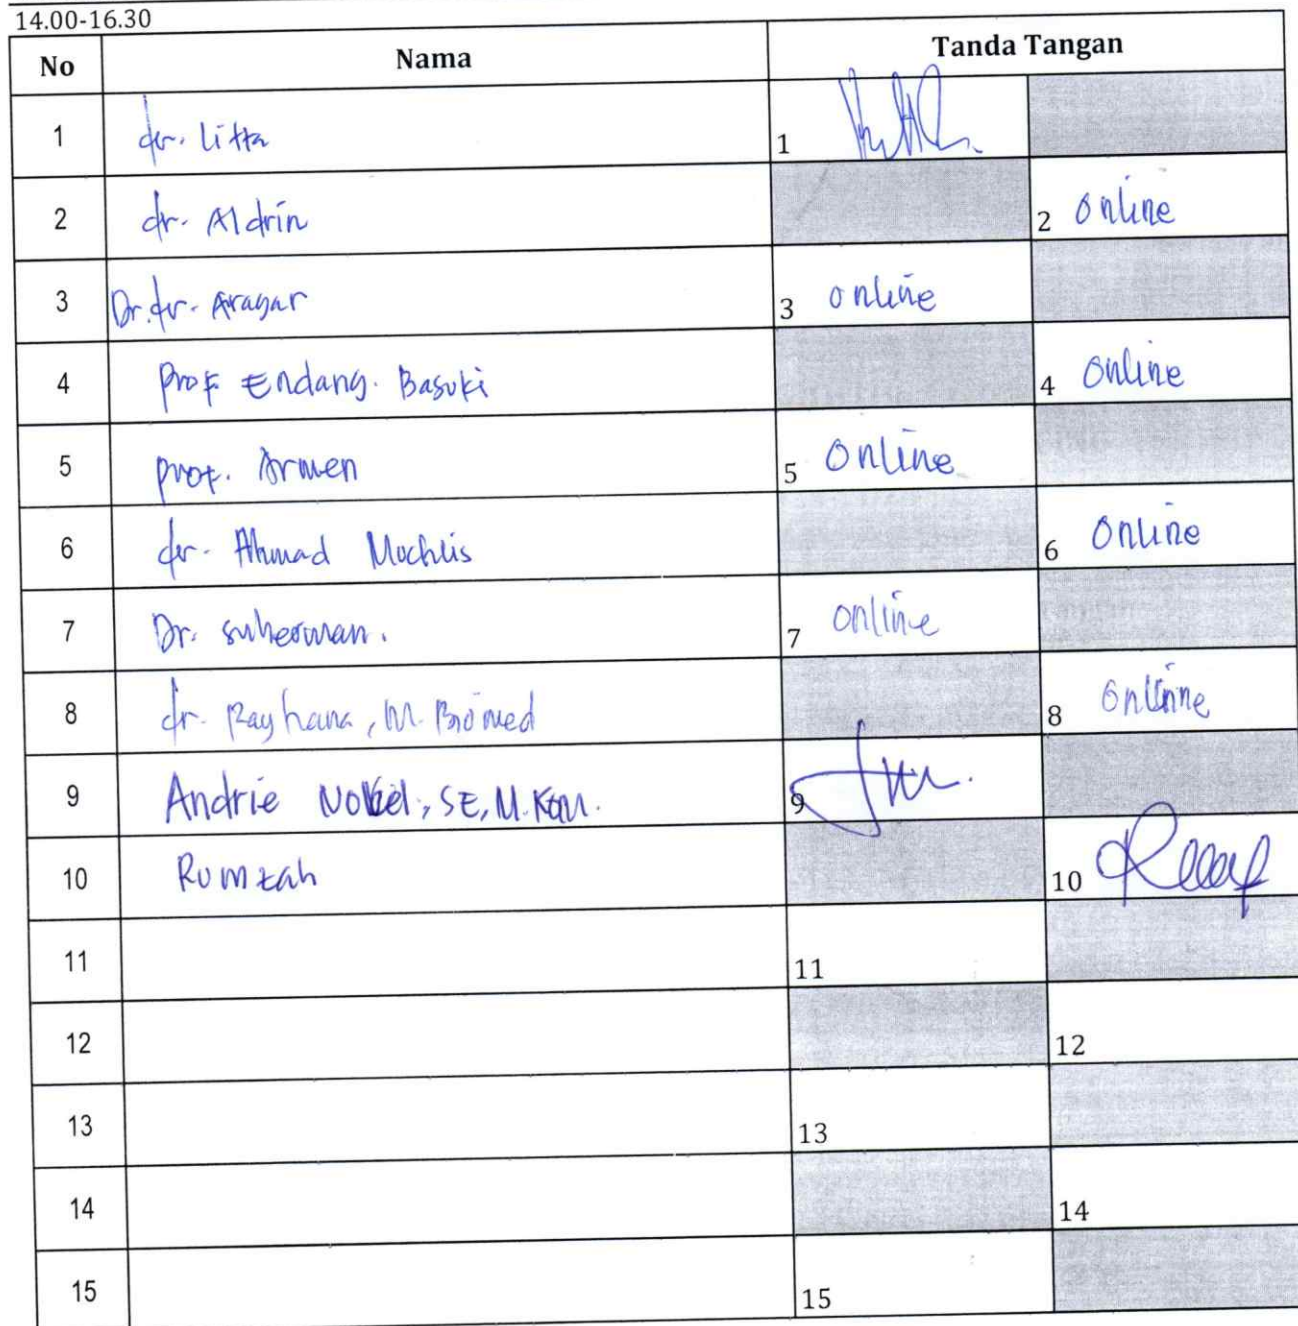 14.00-16.30
No Nama Tanda Tangan
1 dr. Litta 1
2 dr. Aldrin 2 online
3 Dr. dr. Aragar 3 online
4 Prof Endang. Basuki 4 online
5 prof. Armen 5 online
6 dr. Ahmad Muchlis 6 online
7 Dr. suherman. 7 online
8 dr. Rayhana, M. Biomed 8 online
9 Andrie Nobel, SE, M.Kom. 9
10 Rumzah 10
11 11
12 12
13 13
14 14
15 15